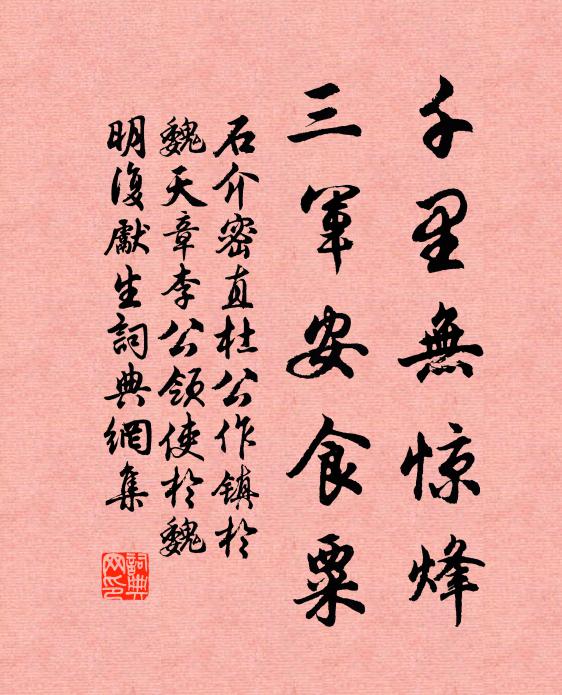 千里無惊烽
三軍安食粟
石介密直杜公作镇於
魏天章李公领使於魏
明復獻生詞典網集
詞典
网印